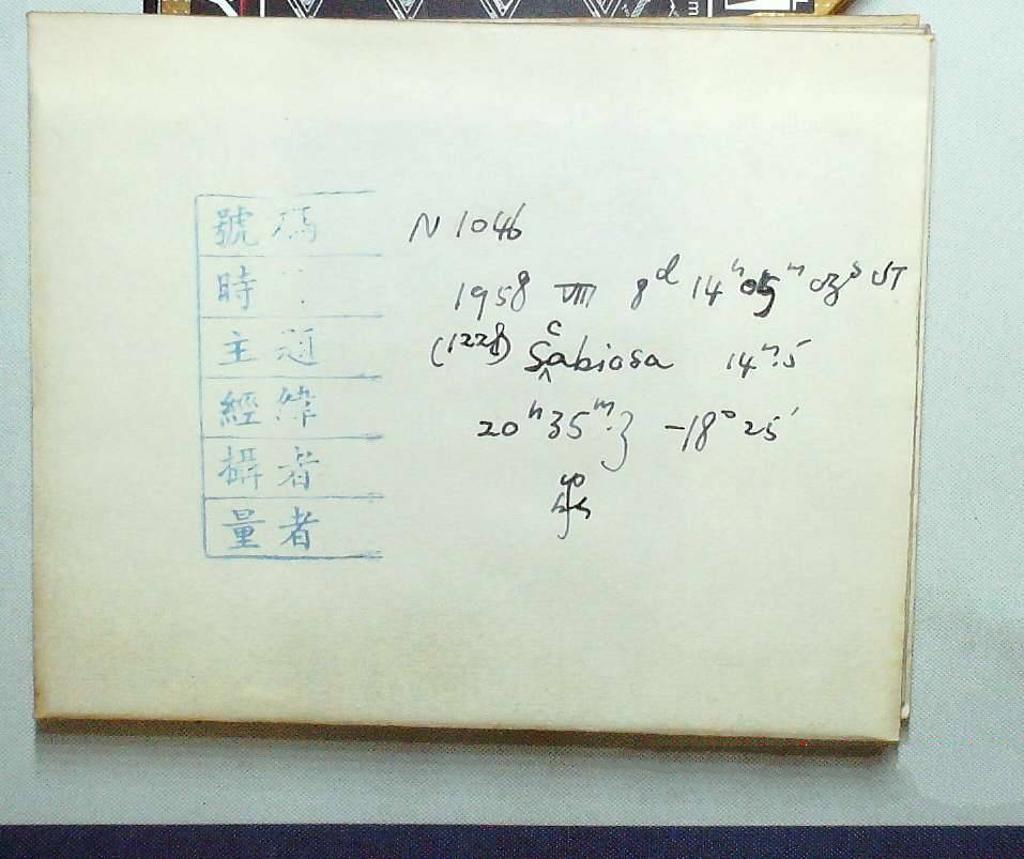 號碼 N 1046
時 1958 VIII 8d 14h05m03s UT
主題 (1228) Scabiosa 14m.5
經緯 20h35m.3 -18°25'
攝者
量者